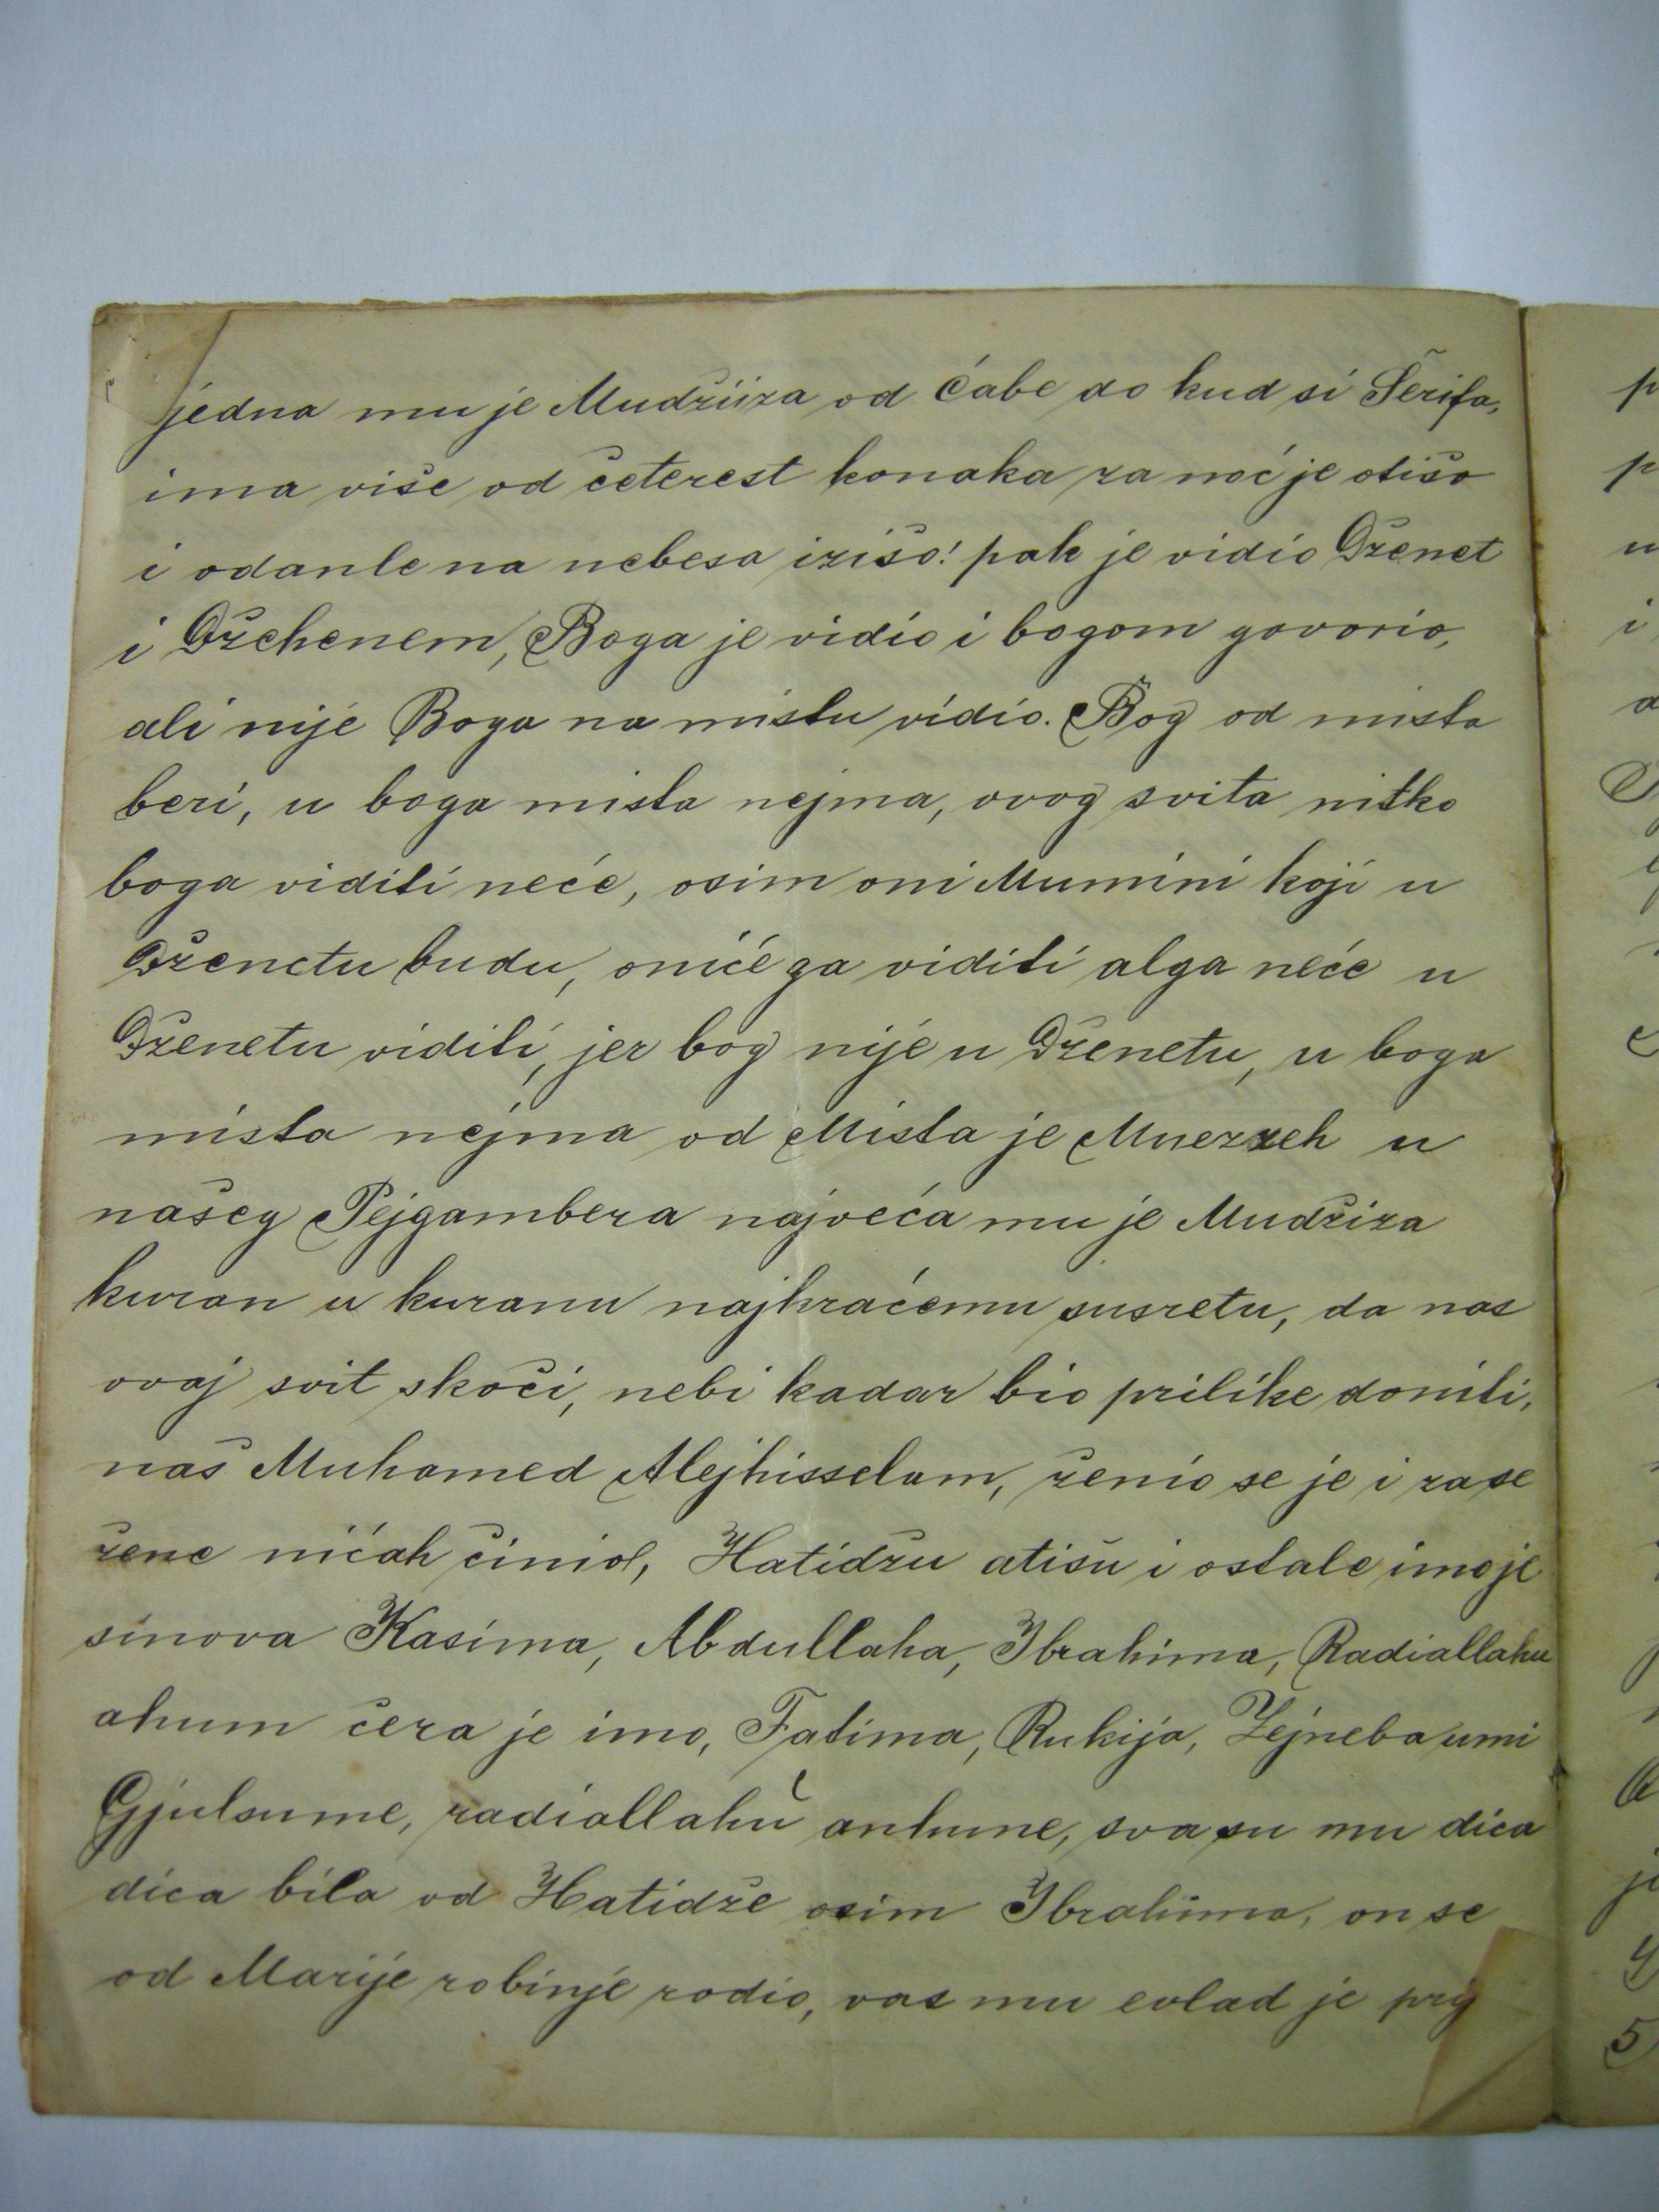 jedna mu je Mudžiiza od Ćabe do kud si Šerifa,
ima više od četerest konaka za noć je otišo
i odanle na nebesa izišo! pak je vidio Dženet
i Džehenem, Boga je vidio i bogom govorio,
ali nije Boga na mistu vidio. Bog od mista
beri, u boga mista nejma, ovog svita nitko
boga viditi neće, osim oni Mumini koji u
Dženetu budu, oniće ga viditi alga neće u
Dženetu viditi, jer bog nije u Dženetu, u boga
mista nejma od Mista je Muezzeh u
našeg Pejgambera najveća mu je Mudžiza
kuran u kuranu najkraćemu susretu, da nas
ovaj svit skoči, nebi kadar bio prilike doniti,
naš Muhamed Alejhisselam, ženio se je i za se
žene nićah činio, Hatidžu atišu i ostale imo je
sinova Kasima, Abdullaha, Ibrahima, Radiallahu
ahum ćera je imo, Fatima, Rukija, Zejneba umi
Gjulsume, radiallahu anhune, sva su mu dica
dica bila od Hatidže osim Ibrahima, on se
od Marije robinje rodio, vas mu evlad je prij